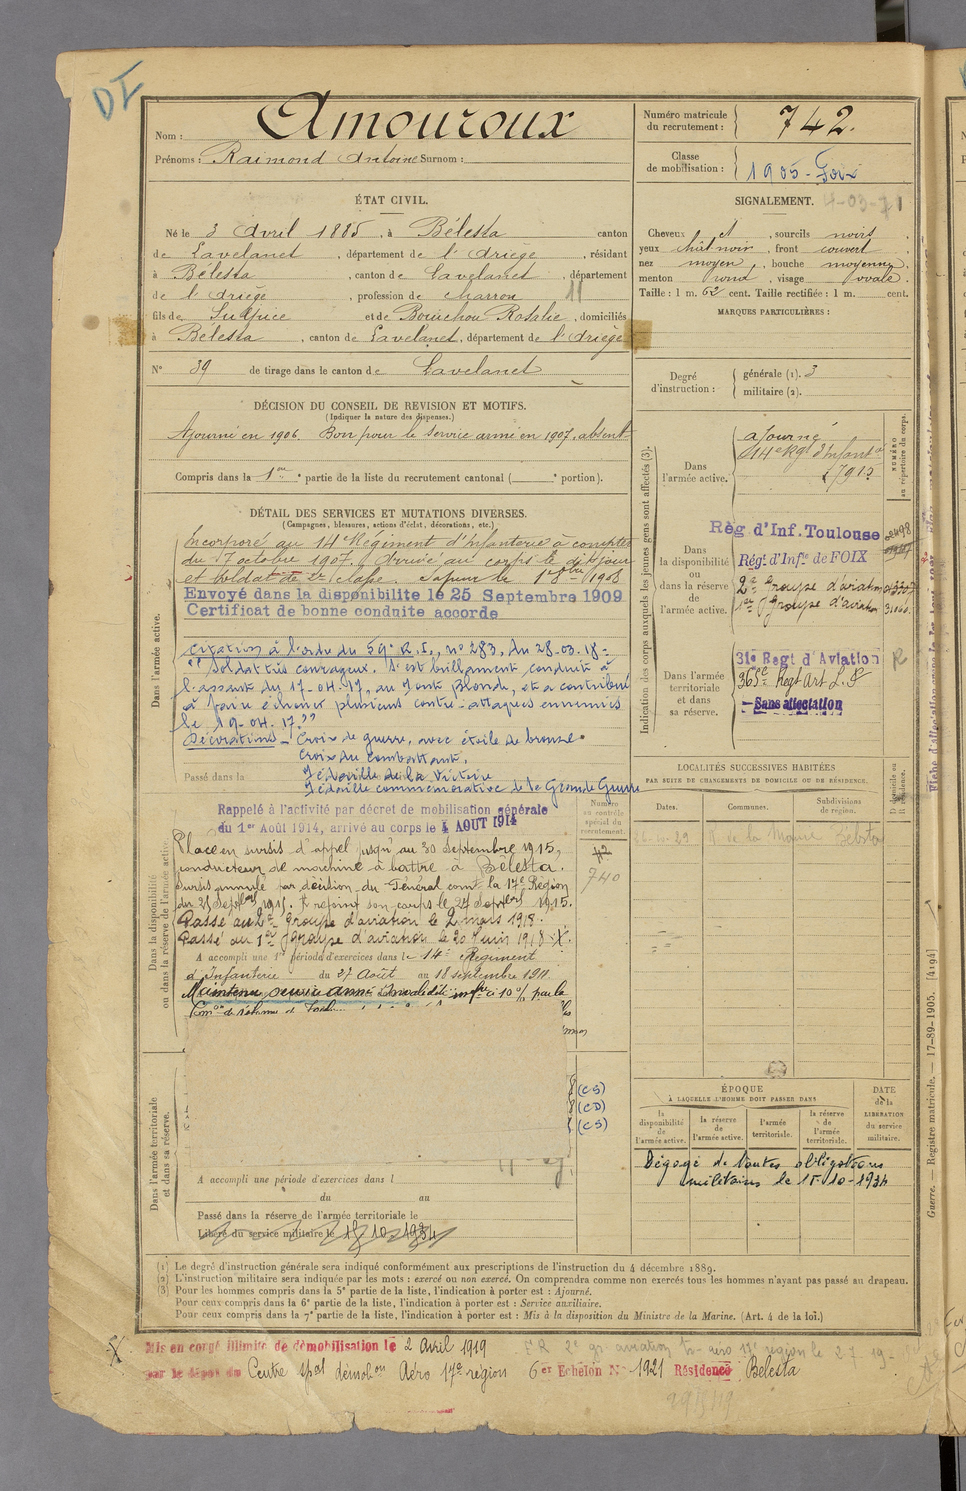 DI
Nom : Amouroux
Prénoms : Raimond Antoine Surnom :
Numéro matricule du recrutement : 742.
Classe de mobilisation : 1905 - Foix
ÉTAT CIVIL.
Né le 3 Avril 1885, à Bélesta canton
de Lavelanet, département de l'Ariège, résidant
à Bélesta, canton de Lavelanet, département
de l'Ariège, profession de charron 11
fils de Sulpice et de Bouichou Rosalie, domiciliés
à Bélesta, canton de Lavelanet, département de l'Ariège
N° 39 de tirage dans le canton de Lavelanet
SIGNALEMENT.
Cheveux et, sourcils noirs
yeux chât noir, front couvert
nez moyen, bouche moyenne,
menton rond, visage ovale.
Taille : 1 m. 62 cent. Taille rectifiée : 1 m. cent.
MARQUES PARTICULIÈRES :
Degré d'instruction : générale (1). 3
militaire (2).
DÉCISION DU CONSEIL DE REVISION ET MOTIFS.
(Indiquer la nature des dispenses.)
Ajourné en 1906. Bon pour le service armé en 1907, absent
Compris dans la 1re partie de la liste du recrutement cantonal ( e portion).
DÉTAIL DES SERVICES ET MUTATIONS DIVERSES.
(Campagnes, blessures, actions d'éclat, décorations, etc.)
Dans l'armée active.
Incorporé au 14e Régiment d'Infanterie à compter
du 7 octobre 1907. Arrivé au corps le dit jour
et soldat de 2e classe. Sapeur le 1908
Envoyé dans la disponibilite le 25 Septembre 1909
Certificat de bonne conduite accorde
Citation à l'ordre du 59e R.I., no 283, du 28.03.18 =
"Soldat très courageux. S'est brillamment conduit à
l'assaut du 17-04-17, au Mont Blond, et a contribué
à faire échouer plusieurs contre-attaques ennemies
le 19-04-17."
Décorations - Croix de guerre, avec étoile de bronze.
Croix du combattant.
Médaille de la Victoire
Passé dans la
Médaille commémorative de la Grande Guerre
Dans la disponibilité ou dans la réserve de l'armée active
Rappelé à l'activité par décret de mobilisation générale
du 1er Août 1914, arrivé au corps le 4 AOUT 1914
Placé en sursis d'appel jusqu'au 30 Septembre 1915,
conducteur de machine à battre à Bélesta.
Sursis annulé par décision du Général comt la 17e Région
du 21 Septbre 1915. Il rejoint son corps le 24 Septbre 1915.
Passé au 2e Groupe d'aviation le 2 mars 1918.
Passé au 1er Groupe d'aviation le 20 Juin 1918 X.
A accompli une 1re période d'exercices dans le 14e Régiment
d'Infanterie du 27 Août au 18 septembre 1911.
Maintenu service armé Invalidité infre à 10% par la
8 (CS)
8 (CD)
8 (CS)
Dans l'armée territoriale et dans sa réserve.
A accompli une période d'exercices dans l
du au
Passé dans la réserve de l'armée territoriale le
Libéré du service militaire le 15 10 1934
Numéro au contrôle spécial du recrutement.
740
Indication des corps auxquels les jeunes gens sont affectés (3).
NUMÉRO au répertoire du corps.
Dans l'armée active.
ajourné
14e Rgt d'Infantie
Dans la disponibilité ou dans la réserve de l'armée active.
Règ d'Inf. Toulouse
Régt d'Infie de FOIX
2e Groupe d'aviation
1er Groupe d'aviation
Dans l'armée territoriale et dans sa réserve.
31e Regt d'Aviation
R
Sans affectation
LOCALITÉS SUCCESSIVES HABITÉES
PAR SUITE DE CHANGEMENTS DE DOMICILE OU DE RÉSIDENCE.
Dates. Communes. Subdivisions de région. D domicile ou R résidence.
ÉPOQUE
À LAQUELLE L'HOMME DOIT PASSER DANS
la disponibilité de l'armée active. la réserve de l'armée active. l'armée territoriale. la réserve de l'armée territoriale.
DATE de la LIBÉRATION du service militaire.
Dégagé de toutes obligations
militaires le 15-10-1934
Guerre. — Registre matricule. — 17-89-1905. [4194]
(1) Le degré d'instruction générale sera indiqué conformément aux prescriptions de l'instruction du 4 décembre 1889.
(2) L'instruction militaire sera indiquée par les mots : exercé ou non exercé. On comprendra comme non exercés tous les hommes n'ayant pas passé au drapeau.
(3) Pour les hommes compris dans la 5e partie de la liste, l'indication à porter est : Ajourné.
Pour ceux compris dans la 6e partie de la liste, l'indication à porter est : Service auxiliaire.
Pour ceux compris dans la 7e partie de la liste, l'indication à porter est : Mis à la disposition du Ministre de la Marine. (Art. 4 de la loi.)
X Mis en congé illimité de démobilisation le 2 Avril 1919
par le dépôt du Centre spal démobon Aéro 17e région 6er Echelon No 1921 Résidence Belesta